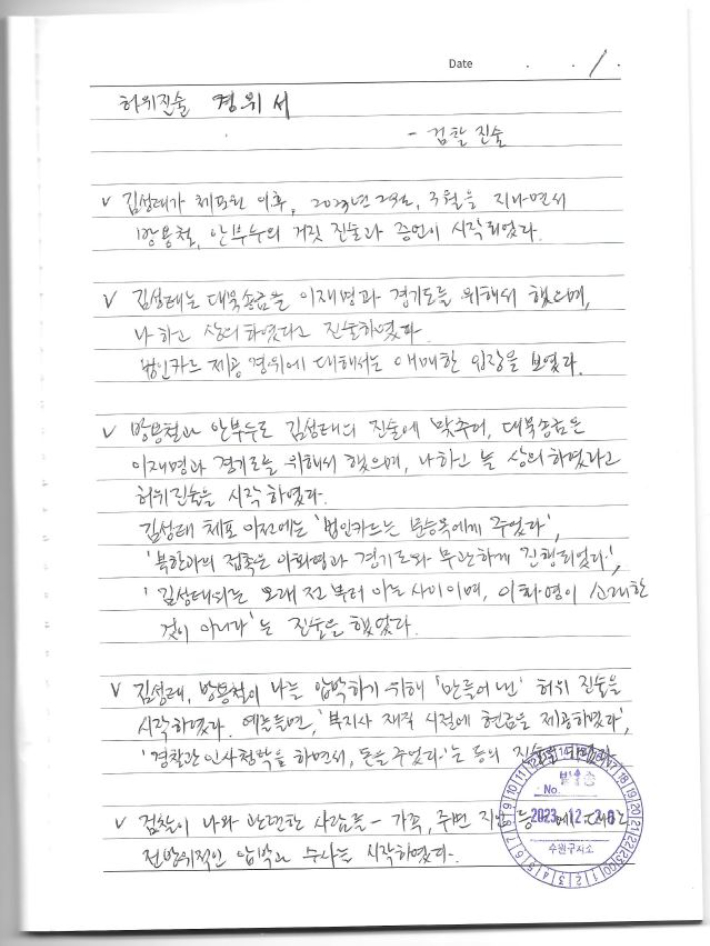 Date . . / .
허위진술 경위서
- 검찰 진술
v 김성태가 체포된 이후, 2023년 2월, 3월을 지나면서
방용철, 안부수의 거짓 진술과 증언이 시작되었다.
v 김성태는 대북송금을 이재명과 경기도를 위해서 했으며,
나하고 상의하였다고 진술하였다.
법인카드 제공 경위에 대해서는 애매한 입장을 보였다.
v 방용철과 안부수도 김성태의 진술에 맞추어, 대북송금은
이재명과 경기도를 위해서 했으며, 나하고 늘 상의하였다고
허위진술을 시작하였다.
김성태 체포 이전에는 '법인카드는 문승옥에게 주었다',
'북한과의 접촉은 이화영과 경기도와 무관하게 진행되었다',
'김성태와는 오래 전부터 아는 사이이며, 이화영이 소개한
것이 아니다'는 진술을 했었다.
v 김성태, 방용철이 나를 압박하기 위해 '만들어 낸' 허위 진술을
시작하였다. 예를들면, '부지사 재직 시절에 현금을 제공하였다',
'경찰관 인사청탁을 하면서, 돈을 주었다'는 등의
v 검찰이 나와 관련한 사람들 - 가족, 주변 지인 등
전방위적인 압박과 수사를 시작하였다.
발송
No.
2023. 12. 26
수원구치소